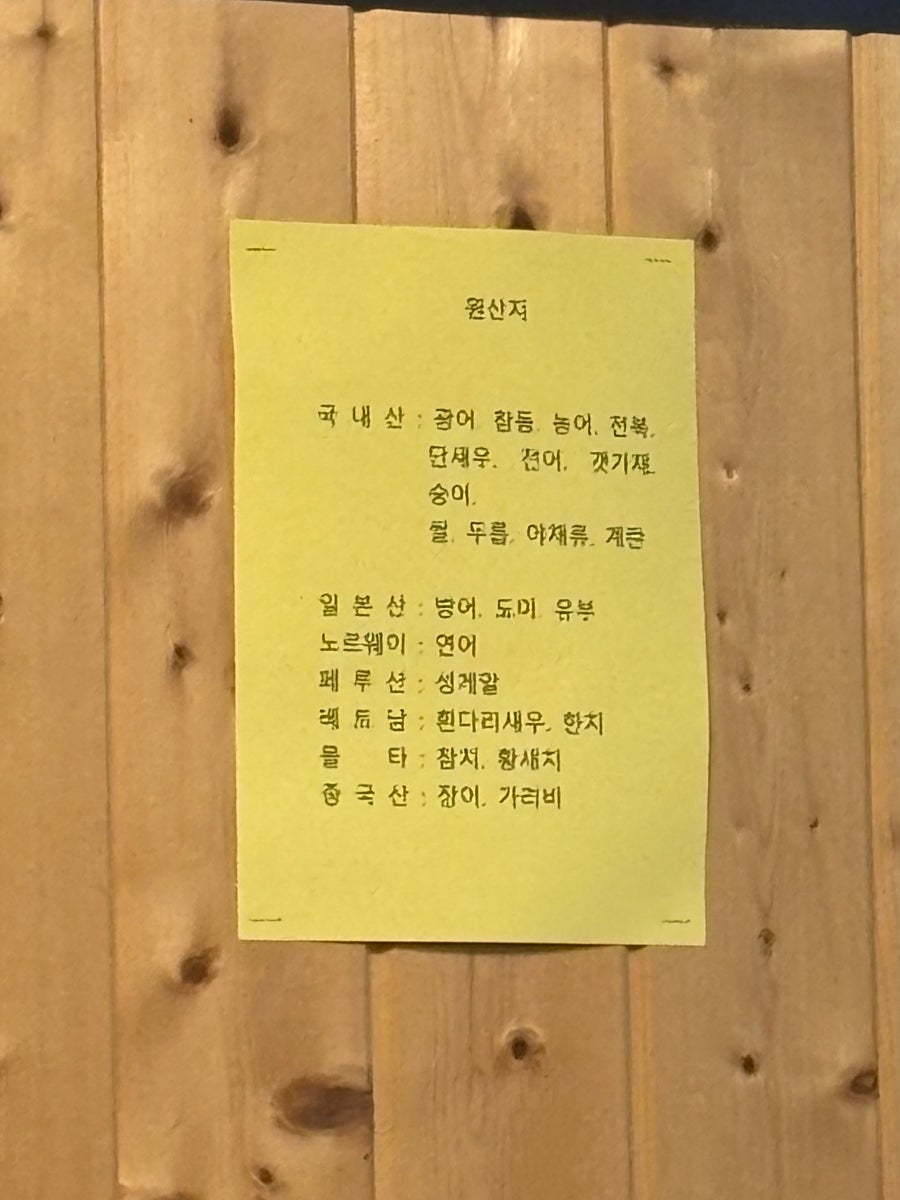 원산지
국 내 산 : 광어 참돔 농어. 전복.
단새우. 전어. 갯가재
숭어.
쌀. 두릅. 야채류. 계란
일 본 산 : 방어. 도미 유부
노르웨이 : 연어
페 루 산 : 성게알
베 트 남 : 흰다리새우. 한치
몰 타 : 참치. 황새치
중 국 산 : 장어. 가리비